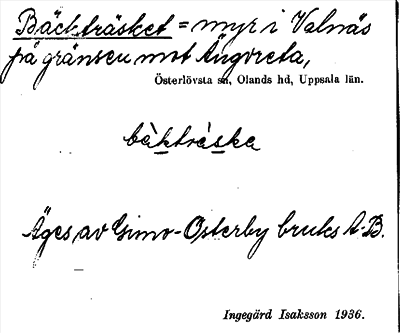 Bäckträsket = myr i Valnäs
på gränsen mot Ängvreta,
Österlövsta sn, Olands hd, Uppsala län.
bàktràska
Äges av Gimo-Osterby bruks A-B.
Ingegärd Isaksson 1936.